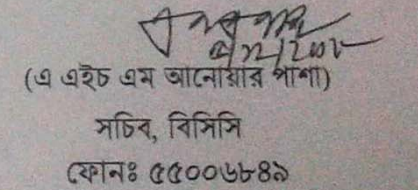 (এ এইচ এম আনোয়ার পাশা)
সচিব, বিসিসি
ফোনঃ ৫৫০০৬৮৪৯